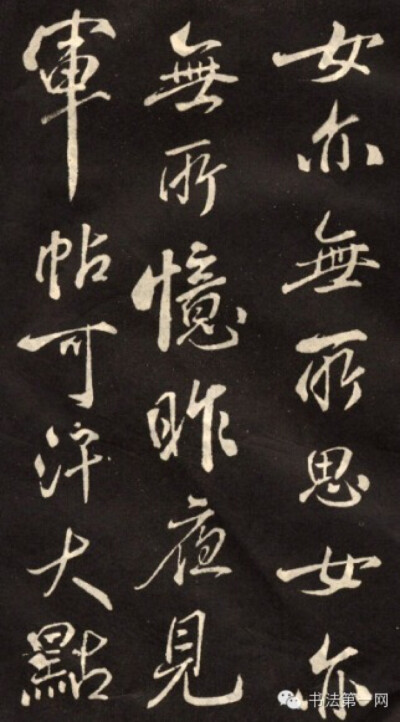 女亦無所思女亦
無所憶昨夜見
軍帖可汗大點
书法第一网